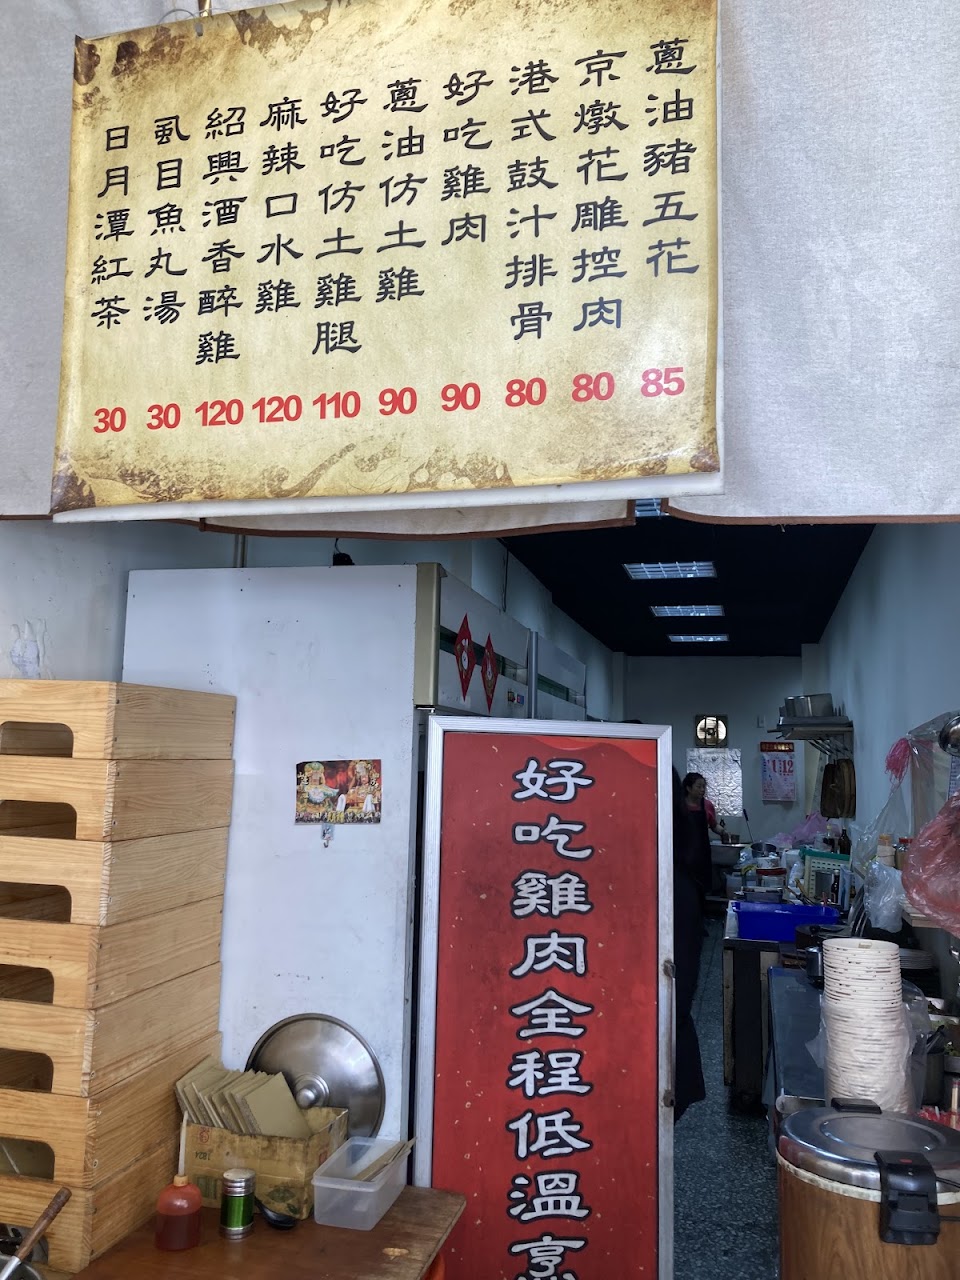 蔥油豬五花 85
京燉花雕控肉 80
港式鼓汁排骨 80
好吃雞肉 90
蔥油仿土雞 90
好吃仿土雞腿 110
麻辣口水雞 120
紹興酒香醉雞 120
虱目魚丸湯 30
日月潭紅茶 30
好吃雞肉全程低溫烹
12